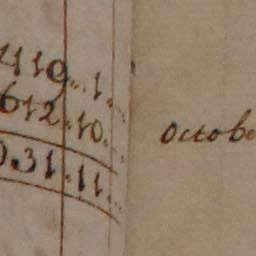 419..1..
612.10.
931.11.
Octobe